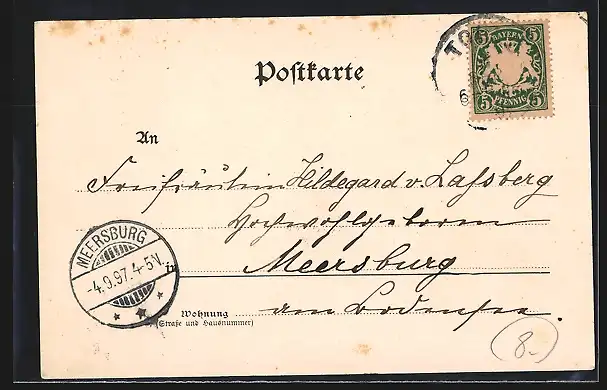 Postkarte
5 BAYERN 5
5 PFENNIG 5
An
Freifräulein Hildegard v. Laßberg
Hochwohlgeboren
MEERSBURG
-4.9.97.4-5V.
in Meersburg
am Bodensee.
Wohnung
(Straße und Hausnummer)
8.-